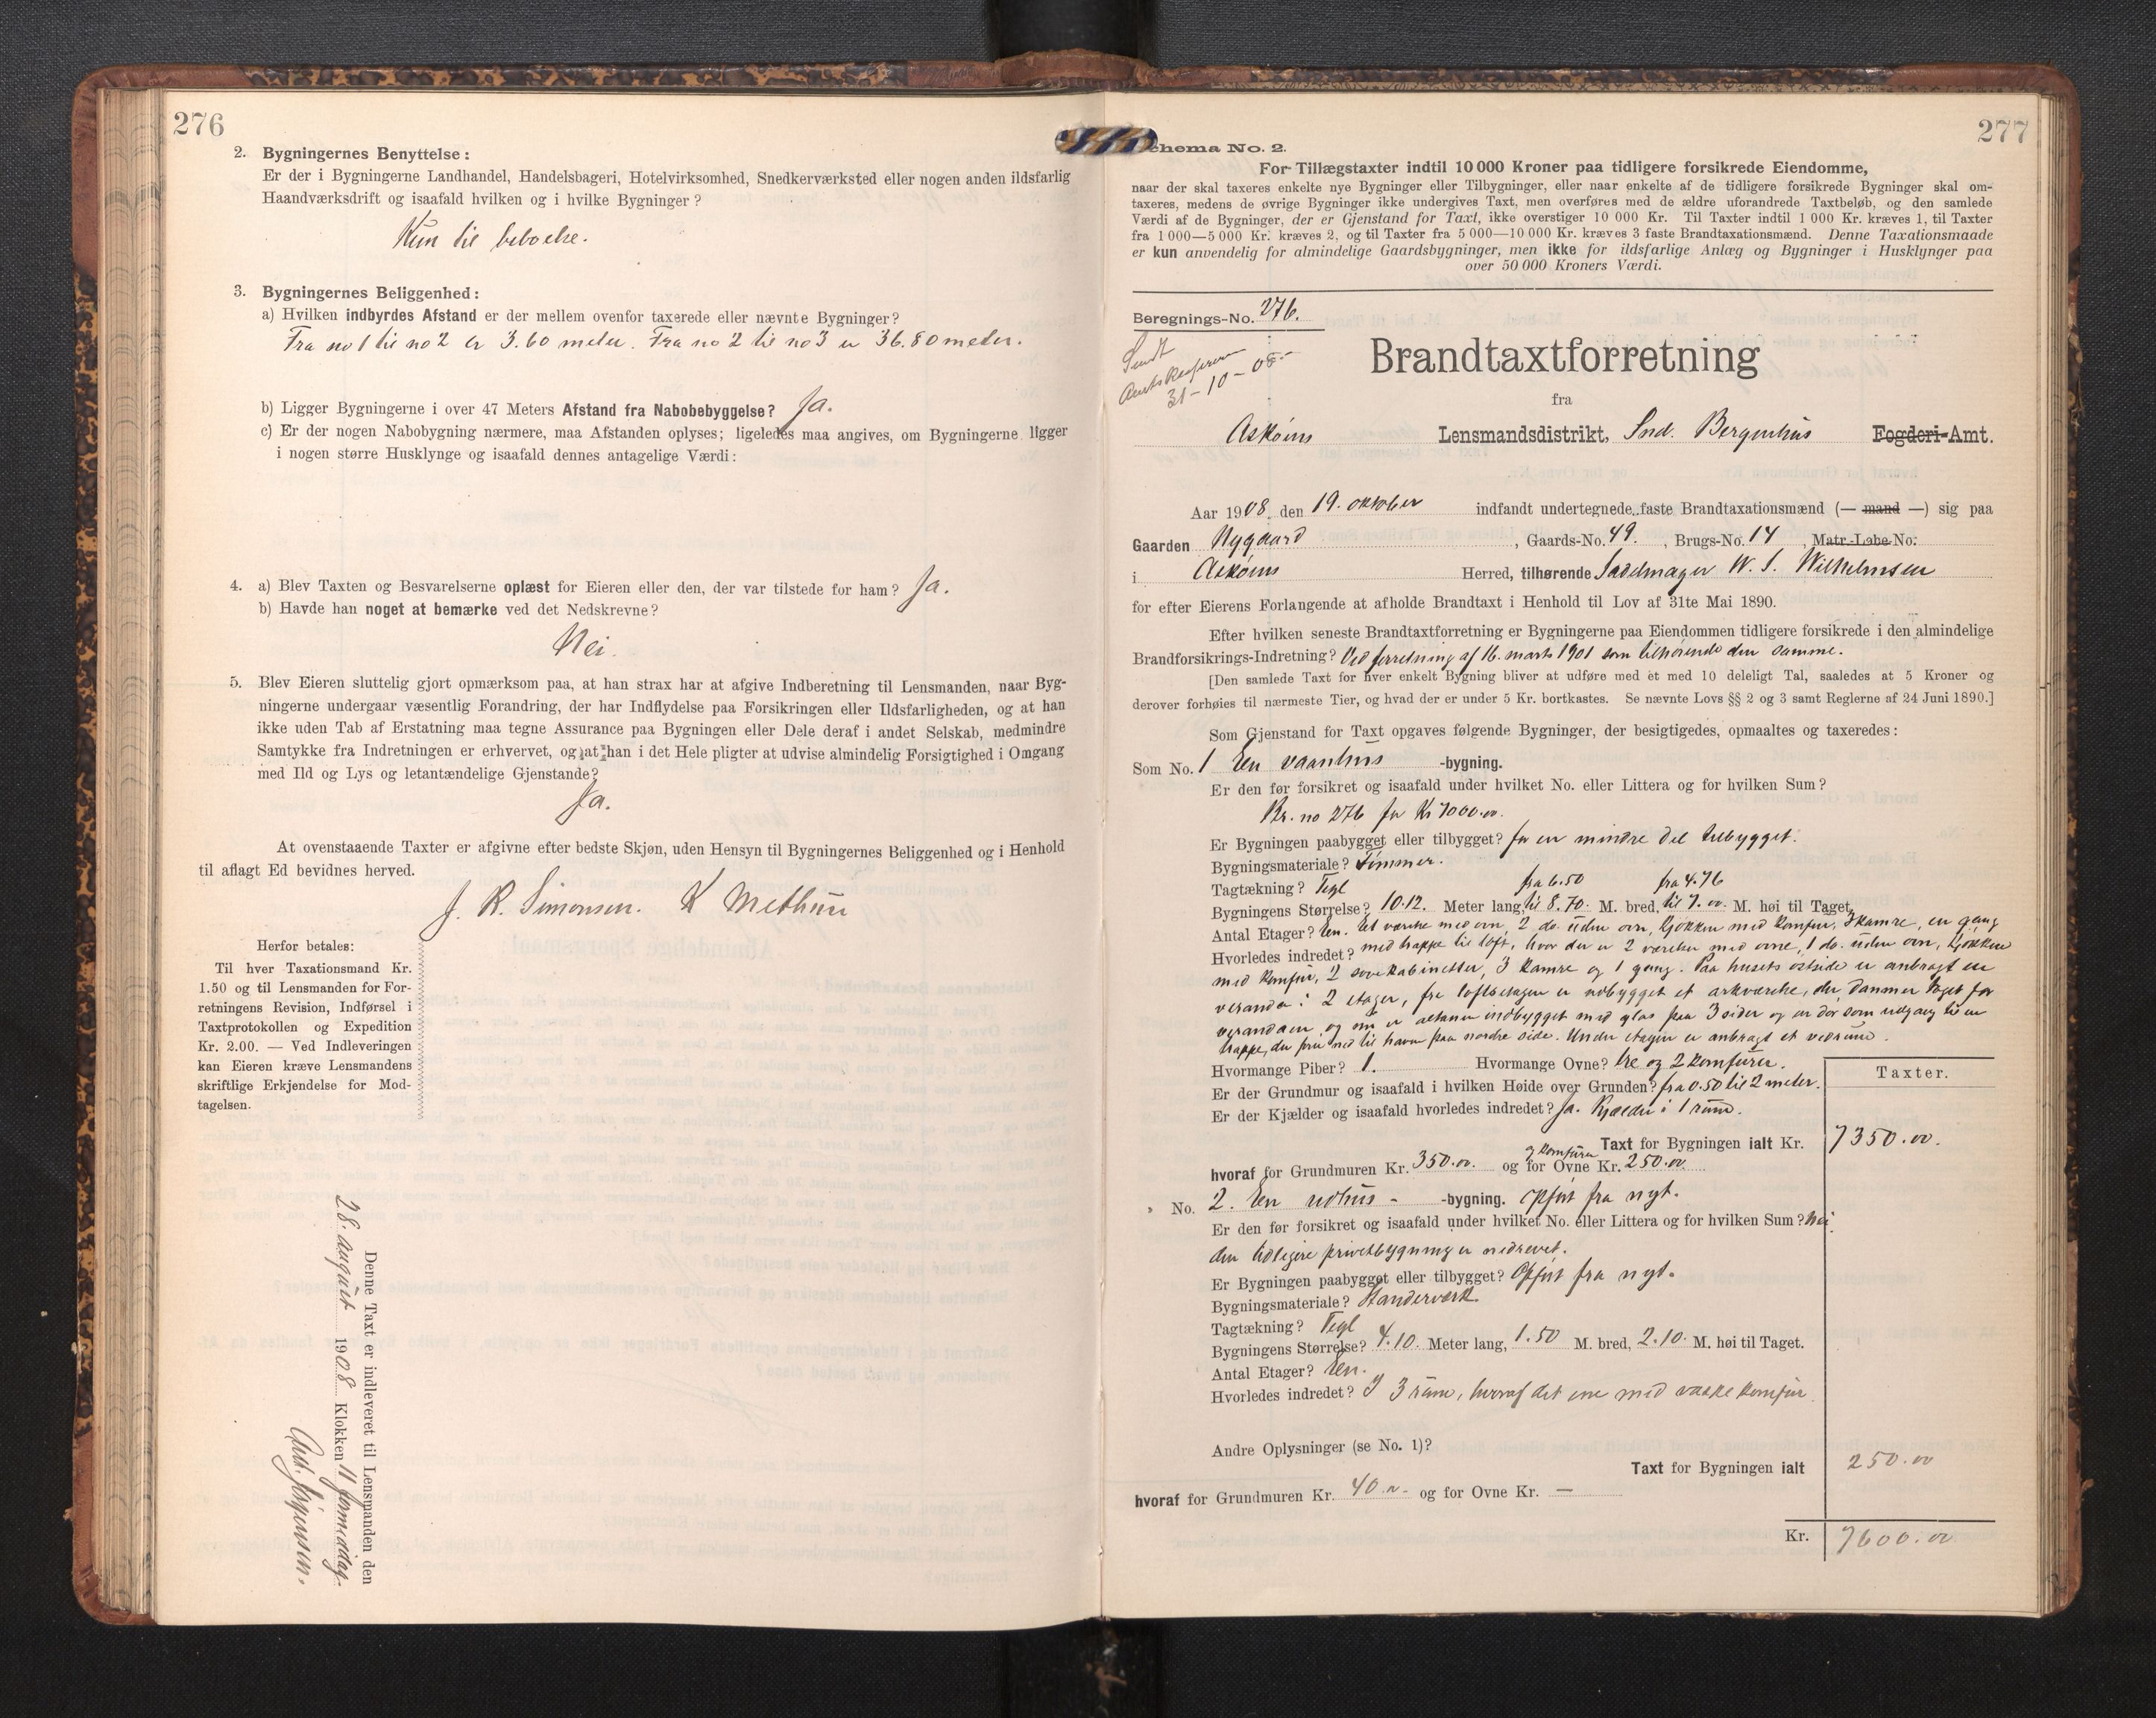 276
2. Bygningernes Benyttelse:
Er der i Bygningerne Landhandel, Handelsbageri, Hotelvirksomhed, Snedkerværksted eller nogen anden ildsfarlig
Haandværksdrift og isaafald hvilken og i hvilke Bygninger?
Kun til beboelse.
3. Bygningernes Beliggenhed:
a) Hvilken indbyrdes Afstand er der mellem ovenfor taxerede eller nævnte Bygninger?
Fra no 1 til no 2 er 3.60 meter. Fra no 2 til no 3 er 36.80 meter.
b) Ligger Bygningerne i over 47 Meters Afstand fra Nabobebyggelse? Ja.
c) Er der nogen Nabobygning nærmere, maa Afstanden oplyses; ligeledes maa angives, om Bygningerne ligger
i nogen større Husklynge og isaafald dennes antagelige Værdi:
4. a) Blev Taxten og Besvarelserne oplæst for Eieren eller den, der var tilstede for ham? Ja.
b) Havde han noget at bemærke ved det Nedskrevne?
Nei.
5. Blev Eieren sluttelig gjort opmærksom paa, at han strax har at afgive Indberetning til Lensmanden, naar Byg-
ningerne undergaar væsentlig Forandring, der har Indflydelse paa Forsikringen eller Ildsfarligheden, og at han
ikke uden Tab af Erstatning maa tegne Assurance paa Bygningen eller Dele deraf i andet Selskab, medmindre
Samtykke fra Indretningen er erhvervet, og at han i det Hele pligter at udvise almindelig Forsigtighed i Omgang
med Ild og Lys og letantændelige Gjenstande?
Ja.
At ovenstaaende Taxter er afgivne efter bedste Skjøn, uden Hensyn til Bygningernes Beliggenhed og i Henhold
til aflagt Ed bevidnes herved.
J. R. Simonsen. K Methun
Herfor betales:
Til hver Taxationsmand Kr.
1.50 og til Lensmanden for For-
retningens Revision, Indførsel i
Taxtprotokollen og Expedition
Kr. 2.00. — Ved Indleveringen
kan Eieren kræve Lensmandens
skriftlige Erkjendelse for Mod-
tagelsen.
Denne Taxt er indleveret til Lensmanden den
28. august 1908 Klokken 11 formiddag.
277
Schema No. 2.
For Tillægstaxter indtil 10 000 Kroner paa tidligere forsikrede Eiendomme,
naar der skal taxeres enkelte nye Bygninger eller Tilbygninger, eller naar enkelte af de tidligere forsikrede Bygninger skal om-
taxeres, medens de øvrige Bygninger ikke undergives Taxt, men overføres med de ældre uforandrede Taxtbeløb, og den samlede
Værdi af de Bygninger, der er Gjenstand for Taxt, ikke overstiger 10 000 Kr. Til Taxter indtil 1 000 Kr. kræves 1, til Taxter
fra 1 000—5 000 Kr. kræves 2, og til Taxter fra 5 000—10 000 Kr. kræves 3 faste Brandtaxationsmænd. Denne Taxationsmaade
er kun anvendelig for almindelige Gaardsbygninger, men ikke for ildsfarlige Anlæg og Bygninger i Husklynger paa
over 50 000 Kroners Værdi.
Beregnings-No. 276.
Sendt
31-10-08-
Brandtaxtforretning
fra
Askøens Lensmandsdistrikt, Snd. Bergenhus Fogderi-Amt.
Aar 1908 den 19. oktober indfandt undertegnede faste Brandtaxationsmænd (— mand —) sig paa
Gaarden Nygaard, Gaards-No. 49., Brugs-No. 14, Matr.-Løbe-No.
i Askøens Herred, tilhørende Sadelmager W. S. Wilhelmsen
for efter Eierens Forlangende at afholde Brandtaxt i Henhold til Lov af 31te Mai 1890.
Efter hvilken seneste Brandtaxtforretning er Bygningerne paa Eiendommen tidligere forsikrede i den almindelige
Brandforsikrings-Indretning? Ved forretning af 16. marts 1901 som tilhørende den samme.
[Den samlede Taxt for hver enkelt Bygning bliver at udføre med et med 10 deleligt Tal, saaledes at 5 Kroner og
derover forhøies til nærmeste Tier, og hvad der er under 5 Kr. bortkastes. Se nævnte Lovs §§ 2 og 3 samt Reglerne af 24 Juni 1890.]
Som Gjenstand for Taxt opgaves følgende Bygninger, der besigtigedes, opmaaltes og taxeredes:
Som No. 1 En vaanhus -bygning.
Er den før forsikret og isaafald under hvilket No. eller Littera og for hvilken Sum?
Br. no 276 for Kr 7000.00.
Er Bygningen paabygget eller tilbygget? for en mindre del tilbygget.
Bygningsmateriale? Tømmer.
Tagtækning? Tegl fra 6.50 fra 4.76
Bygningens Størrelse? 10.12. Meter lang, til 8.70. M. bred, til 7.00. M. høi til Taget.
Antal Etager? En. Et værelse med ovn, 2 do. uden ovn, kjøkken med komfur, 3 kamre, en gang
Hvorledes indredet? med trappe til loft, hvor der er 2 værelser med ovne, 1 do. uden ovn, kjøkken
med komfur, 2 sovekabinetter, 3 kamre og 1 gang. Paa husets østside er anbragt en
veranda i 2 etager, fra loftsetagen er udbygget et arkværelse, der danner taget for
verandaen, og en altan er indbygget med glas paa 3 sider og en dør som udgang til en
trappe, der fører ned til haven paa nordre side. Under etagen er anbragt et vedrum.
Hvormange Piber? 1. Hvormange Ovne? tre og 2 komfurer.
Er der Grundmur og isaafald i hvilken Høide over Grunden? fra 0.50 til 2 meter.
Er der Kjælder og isaafald hvorledes indredet? Ja. Kjælder i 1 rum.
Taxter.
Taxt for Bygningen ialt Kr. 7350.00.
og komfurer
hvoraf for Grundmuren Kr. 350.00. og for Ovne Kr. 250.00
No. 2. En udhus- -bygning. Opført fra nyt.
Er den før forsikret og isaafald under hvilket No. eller Littera og for hvilken Sum? Nei.
den tidligere privetbygning er nedrevet.
Er Bygningen paabygget eller tilbygget? Opført fra nyt.
Bygningsmateriale? Standerværk
Tagtækning? Tegl
Bygningens Størrelse? 4.10. Meter lang, 1.50 M. bred, 2.10. M. høi til Taget.
Antal Etager? En.
Hvorledes indredet? I 3 rum, hvoraf det ene med vaskekomfur.
Andre Oplysninger (se No. 1)?
Taxt for Bygningen ialt 250.00
hvoraf for Grundmuren Kr. 40.00- og for Ovne Kr. —
Kr. 7600.00